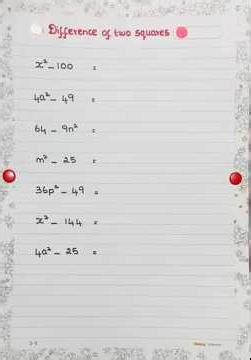 Difference of two squares
x² - 100 =
4a² - 49 =
64 - 9n² =
m² - 25 =
36p² - 49 =
x² - 144 =
4a² - 25 =